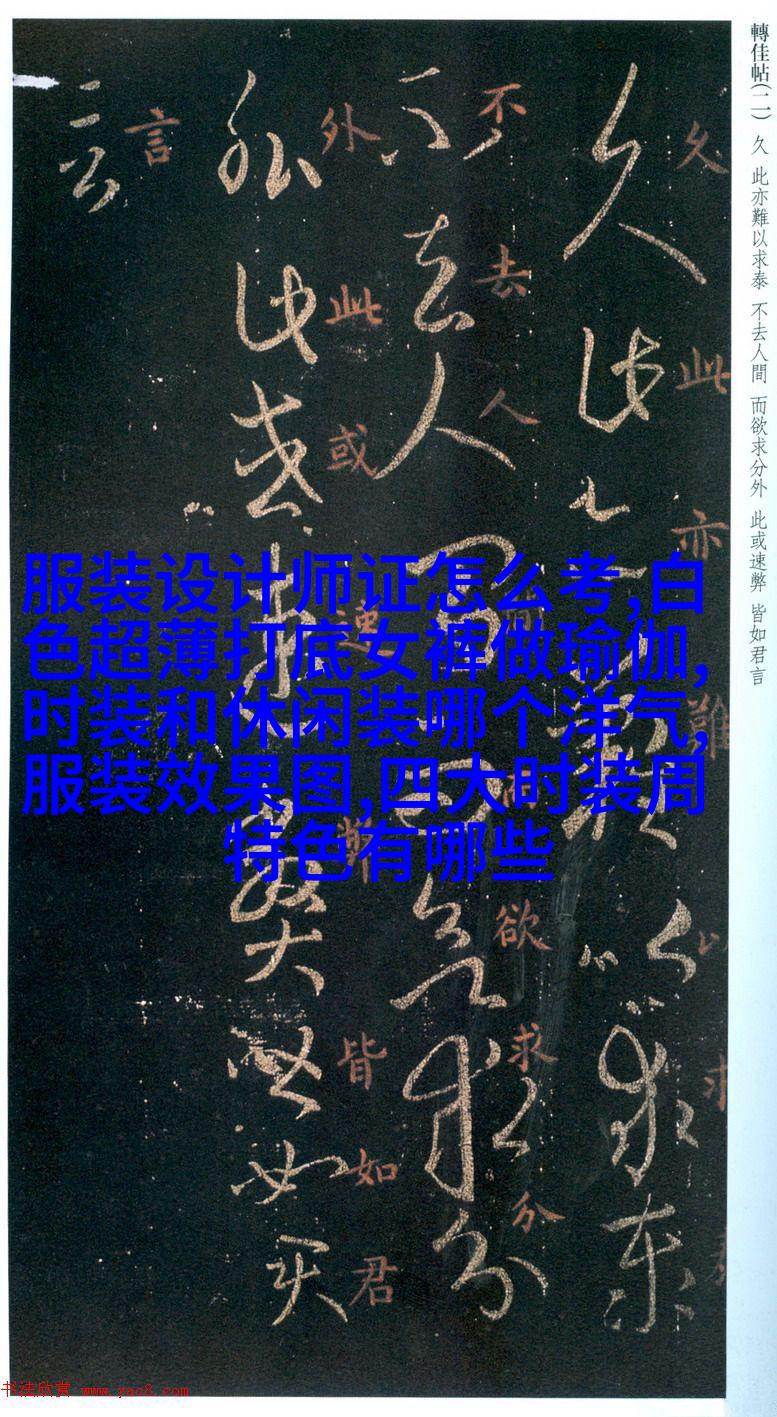 轉佳帖(二) 久 此亦難以求泰 不去人間 而欲求分外 此或速弊 皆如君言
久此亦難以求
不去人間而欲求分
外此或速弊皆如君
言
服装设计师证怎么考,白
色超薄打底女裤做瑜伽,
时装和休闲装哪个洋气,
服装效果图,四大时装周
特色有哪些
书法欣赏 www.yac8.com